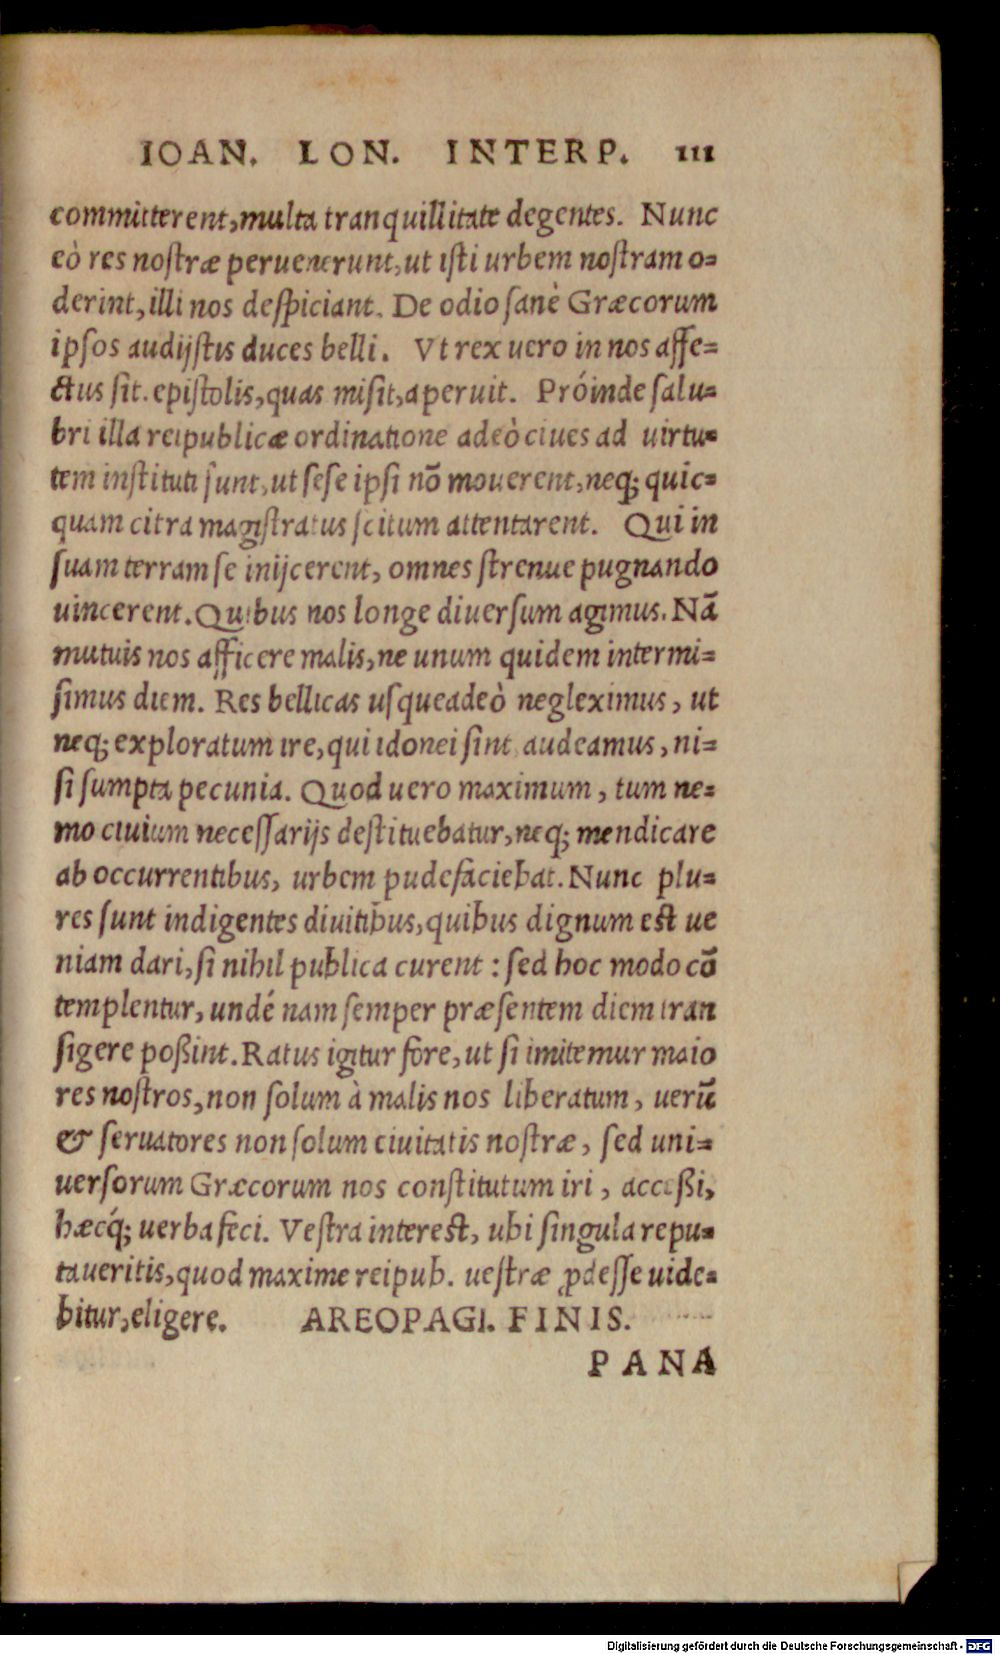 IOAN. LON. INTERP. 111
committerent, multa tranquillitate degentes. Nunc
eò res nostræ peruenerunt, ut isti urbem nostram o-
derint, illi nos despiciant. De odio sanè Græcorum
ipsos audijstis duces belli. Vt rex uero in nos affe-
ctus sit. epistolis, quas misit, aperuit. Próinde salu-
bri illa reipublicæ ordinatione adeò ciues ad uirtu-
tem instituti sunt, ut sese ipsi nõ mouerent, neq; quic-
quam citra magistratus scitum attentarent. Qui in
suam terram se inijcerent, omnes strenue pugnando
uincerent. Quibus nos longe diuersum agimus. Nã
mutuis nos afficere malis, ne unum quidem intermi-
simus diem. Res bellicas usqueadeò negleximus, ut
neq; exploratum ire, qui idonei sint audeamus, ni-
si sumpta pecunia. Quod uero maximum, tum ne-
mo ciuium necessarijs destituebatur, neq; mendicare
ab occurrentibus, urbem pudefaciebat. Nunc plu-
res sunt indigentes diuitibus, quibus dignum est ue
niam dari, si nihil publica curent : sed hoc modo cõ
templentur, undé nam semper præsentem diem tran
sigere poßint. Ratus igitur fore, ut si imitemur maio
res nostros, non solum à malis nos liberatum, uerũ
& seruatores non solum ciuitatis nostræ, sed uni-
uersorum Græcorum nos constitutum iri, acceßi,
hæcq́; uerba feci. Vestra interest, ubi singula repu-
taueritis, quod maxime reipub. uestræ ꝓdesse uide-
bitur, eligere. AREOPAGI. FINIS.
PANA
Digitalisierung gefördert durch die Deutsche Forschungsgemeinschaft - DFG